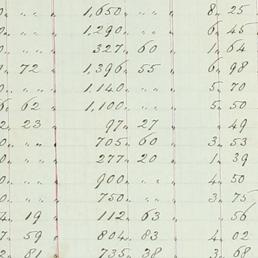 0 " " 1,650 " " 8 " 25
" " " 1,290 " " 6 " 45
0 " " 327 " 60 1 " 64
7 " 72 1,396 " 55 6 " 98
" " 1,140 " " 5 " 70
6 " 62 1,100 " " 5 " 50
2 " 23 97 " 27 " 49
0 " " 705 " 60 3 " 53
0 " " 277 " 20 1 " 39
0 " " 900 " " 4 " 50
0 " " 750 " " 3 " 75
4 " 19 112 " 63 " 56
7 " 59 804 " 83 4 " 02
2 " 81 735 " 38 3 " 68